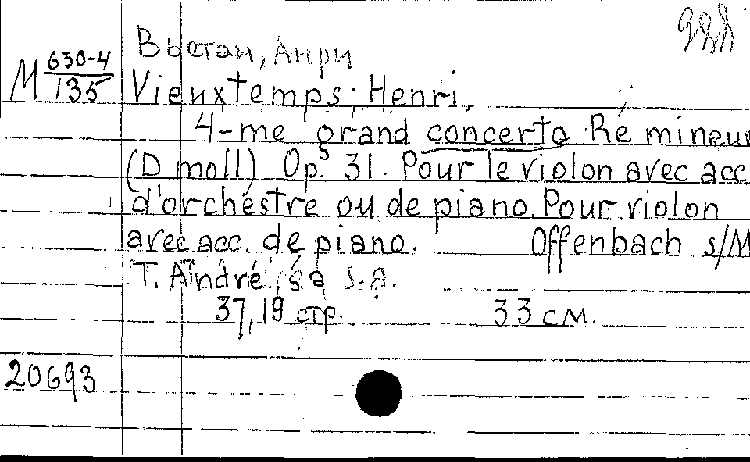 Вьетан, Анри
M 630-4/135
Vieuxtemps, Henri,
4-me grand concerto Ré mineur
(D moll) Op. 31. Pour le violon avec acc
d'orchestre ou de piano. Pour violon
avec acc. de piano. Offenbach s/M
T. André, s.a.
37, 19 стр. 33 см.
20693